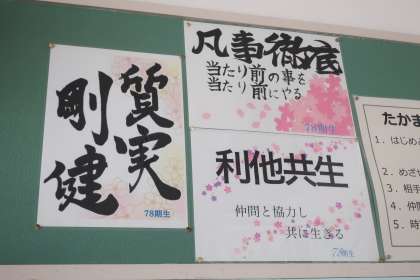 質実
剛健
78期生
凡事徹底
当たり前の事を
当たり前にやる
78期生
利他共生
仲間と協力し
共に生きる
78期生
たかま
1．はじめ
2．めざせ
3．相手
4．仲間
5．時